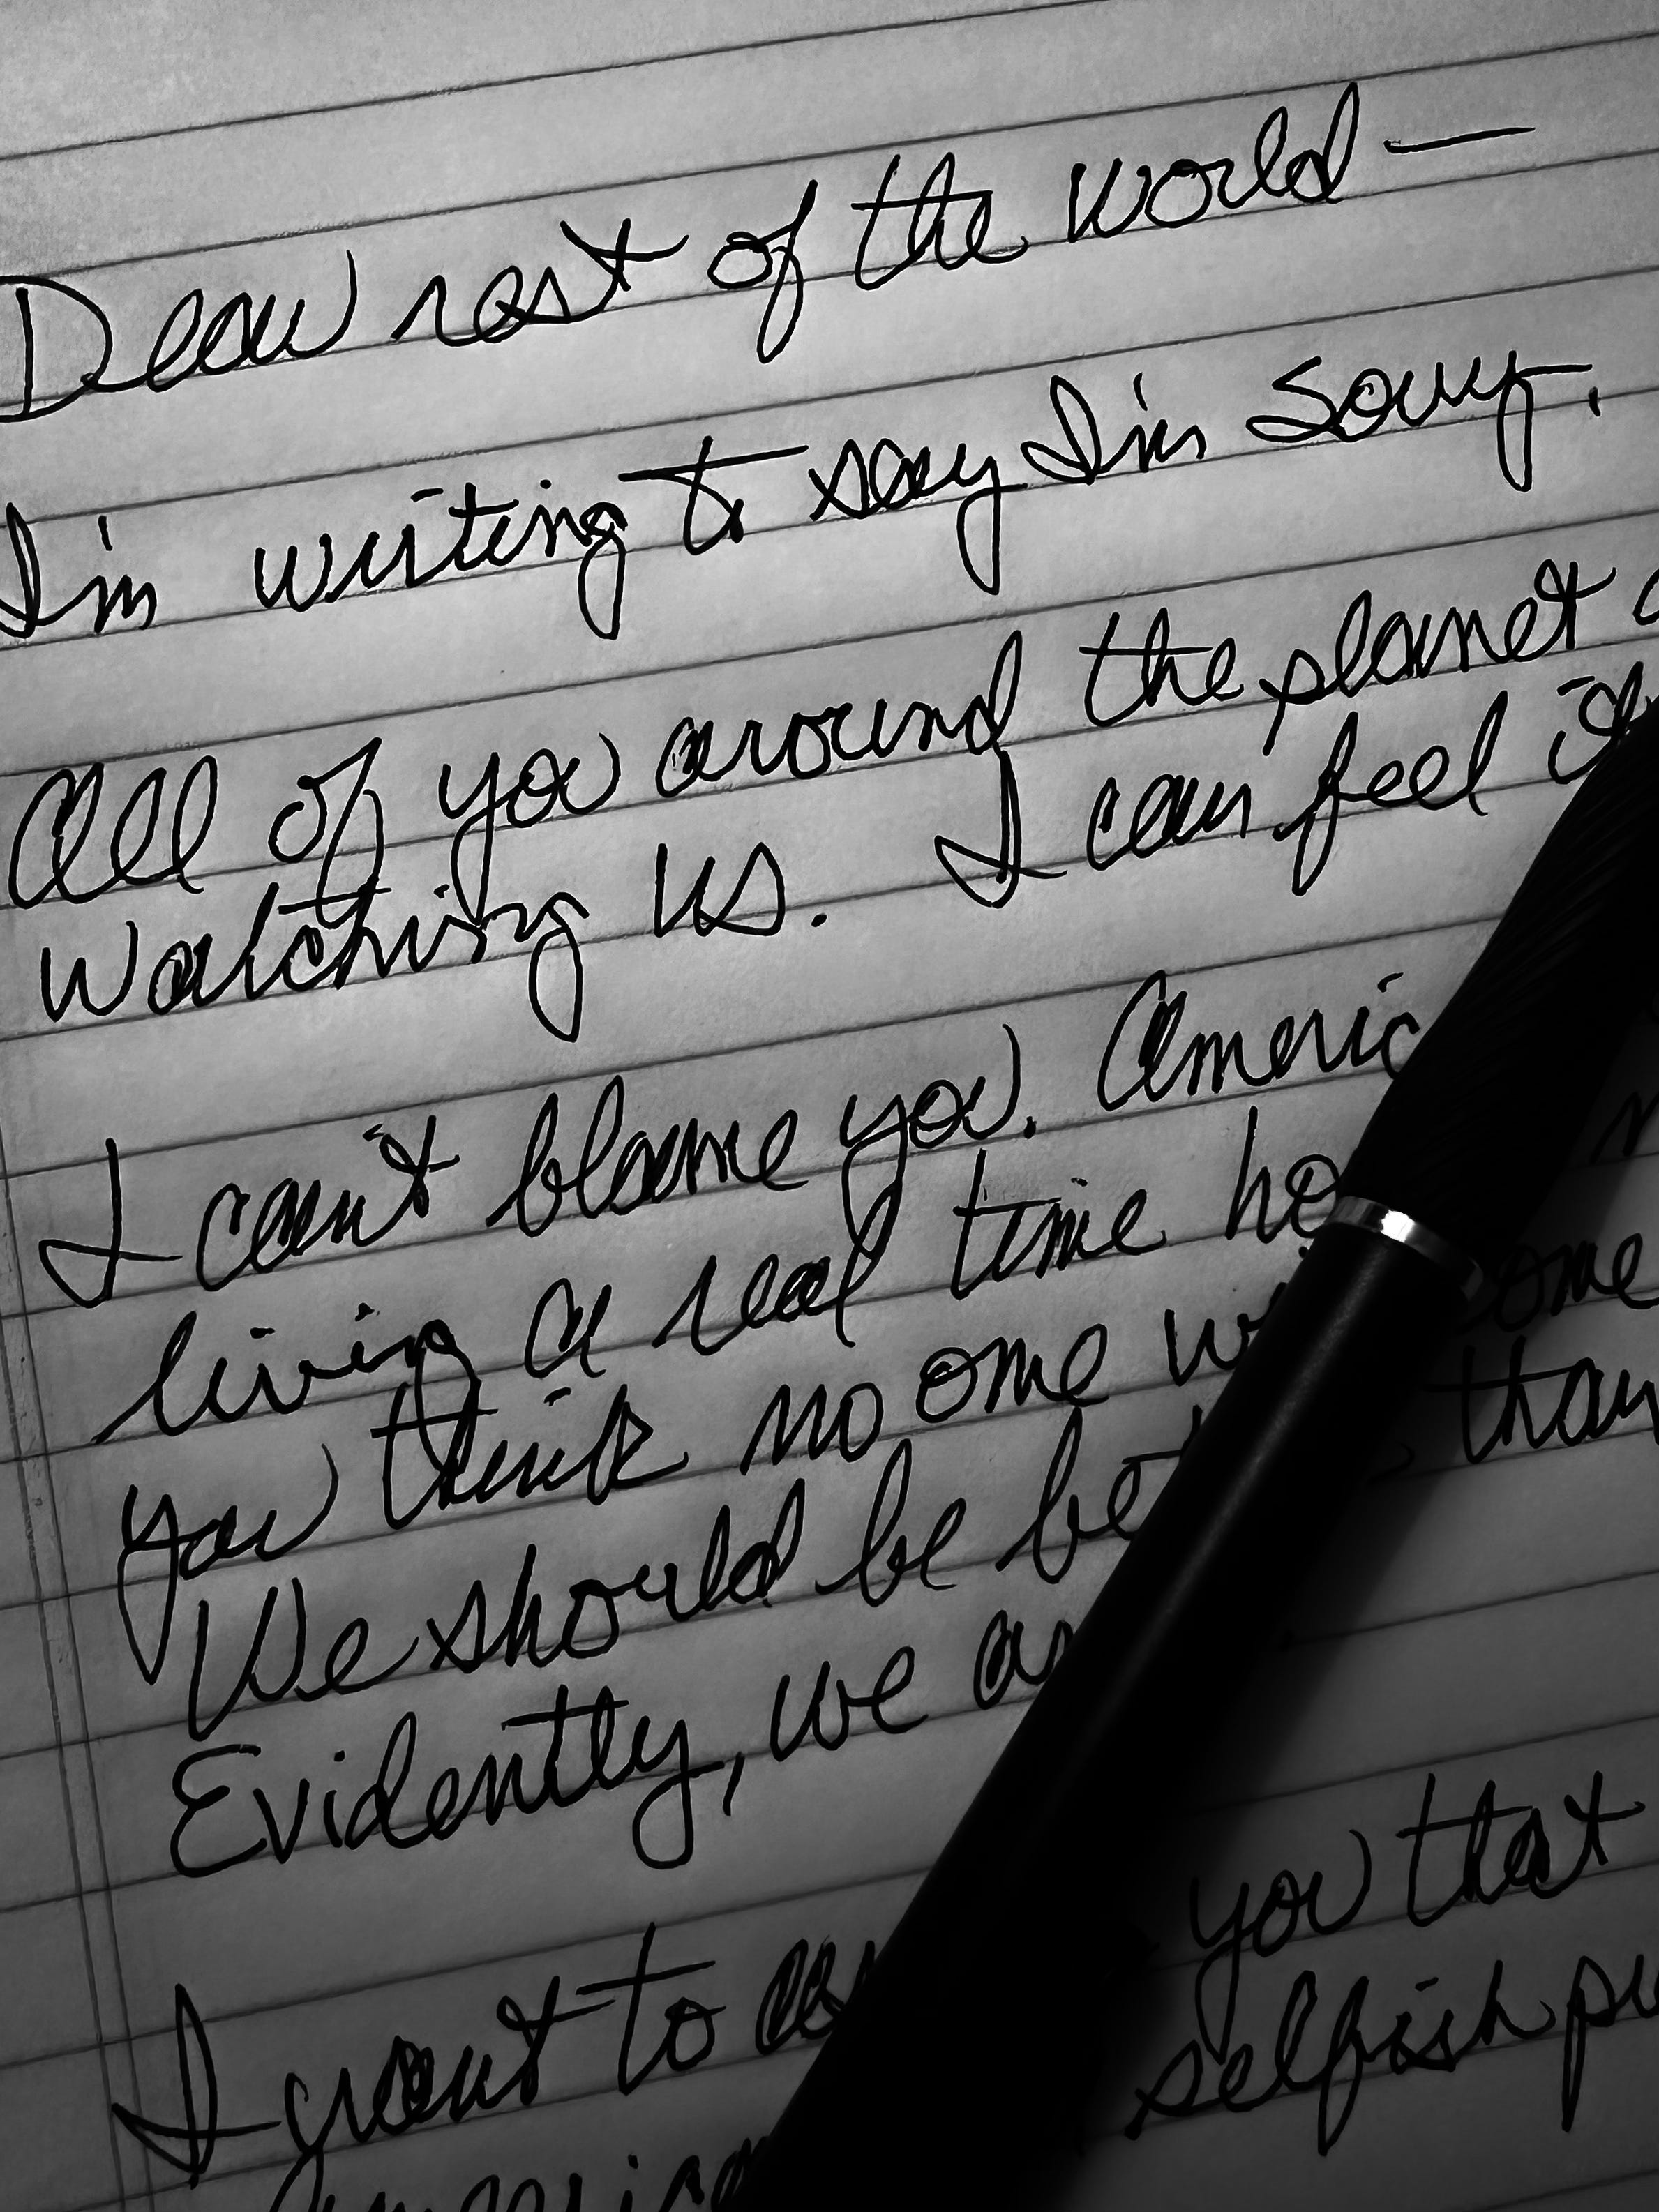 Dear rest of the world —
I'm writing to say I'm sorry.
All of you around the planet
watching us. I can feel it
I can't blame you. Americ
living a real time ho
you think no one wi ome
We should be bet than
Evidently, we a
you that
I want to as selfish pu